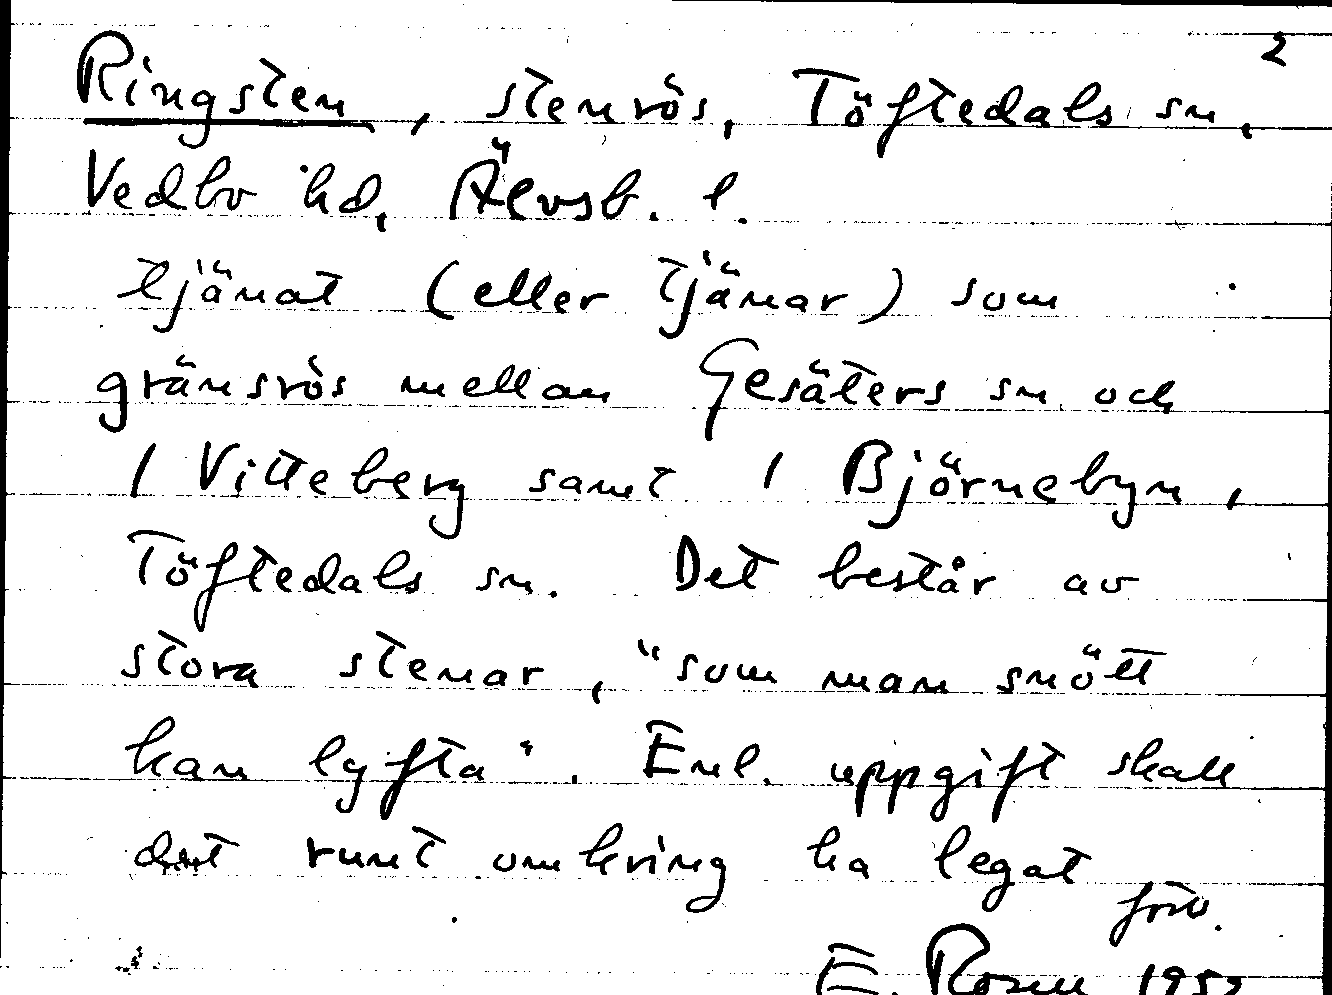 2
Ringsten, stenrös, Töftedals sn,
Vedbo hd, Älvsb. l.
tjänat (eller tjänar) som
gränsrös mellan Gesäters sn och
1 Vitteberg samt 1 Björnebyn,
Töftedals sn. Det består av
stora stenar, "som man snött
kan lyfta". Enl. uppgift skall
det runt omkring ha legat
forts.
E. Rosén